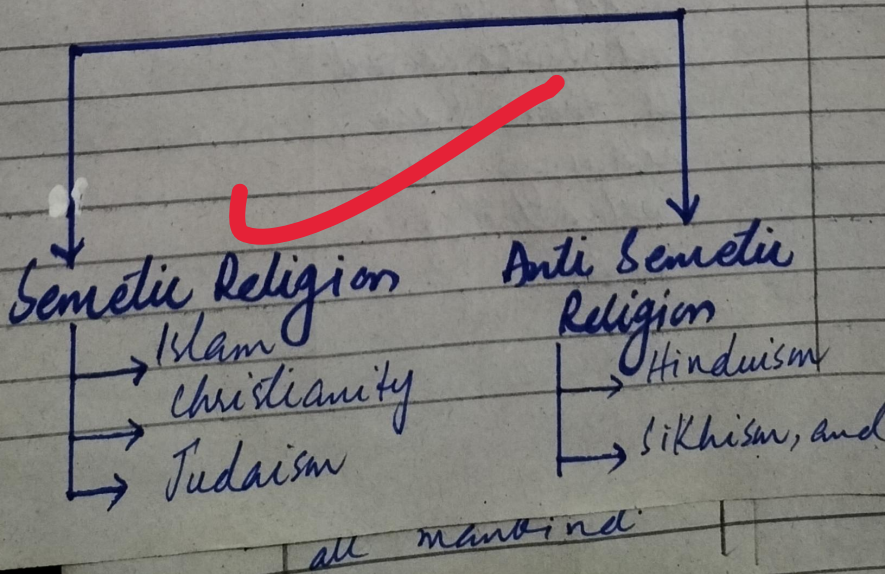 Semetic Religion
Islam
Christianity
Judaism
Anti Semetic
Religion
Hinduism
Sikhism, and
all mankind.